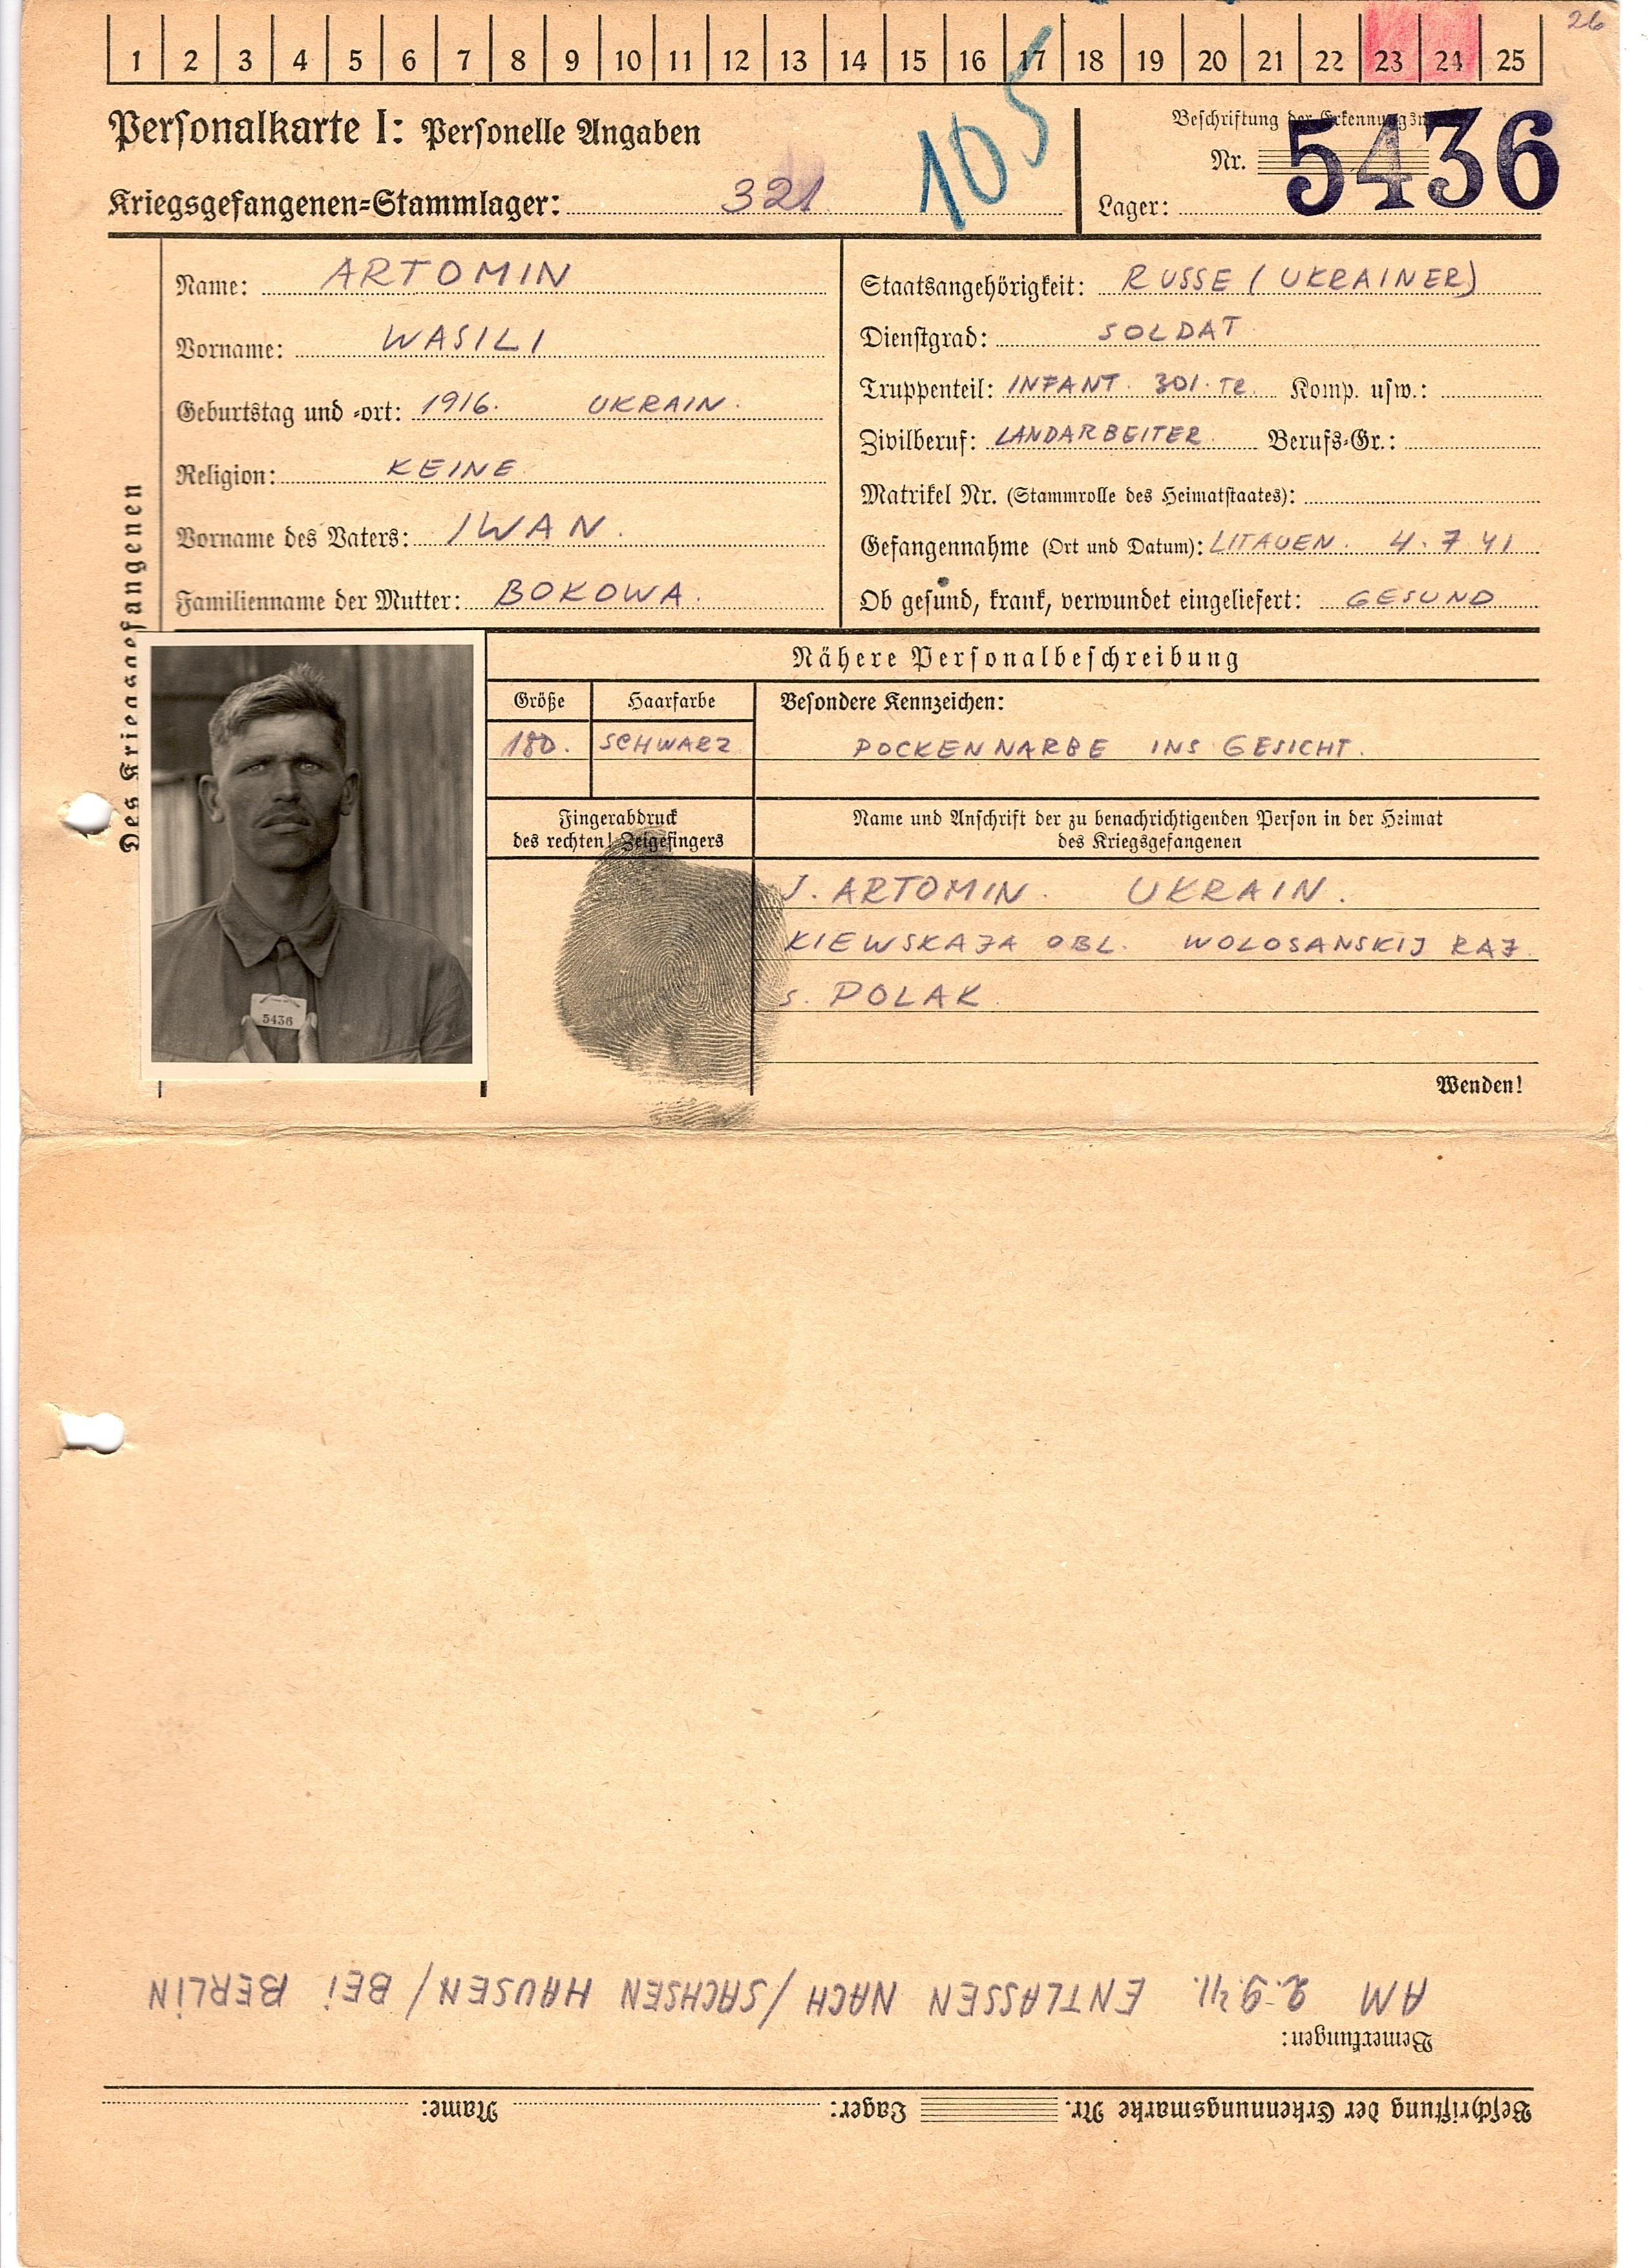 26
1 2 3 4 5 6 7 8 9 10 11 12 13 14 15 16 17 18 19 20 21 22 23 24 25
Personalkarte I: Personelle Angaben
105
Beschriftung der Erkennungsm
Nr. 5436
Kriegsgefangenen-Stammlager: 321
Lager:
Des Kriegsgefangenen
Name: ARTOMIN
Vorname: WASILI
Geburtstag und -ort: 1916. UKRAIN.
Religion: KEINE
Vorname des Vaters: IWAN.
Familienname der Mutter: BOKOWA.
Staatsangehörigkeit: RUSSE (UKRAINER)
Dienstgrad: SOLDAT
Truppenteil: INFANT. 301. TR. Komp. usw.:
Zivilberuf: LANDARBEITER. Berufs-Gr.:
Matrikel Nr. (Stammrolle des Heimatstaates):
Gefangennahme (Ort und Datum): LITAUEN. 4.7.41
Ob gesund, krank, verwundet eingeliefert: GESUND
5436
Nähere Personalbeschreibung
Größe Haarfarbe Besondere Kennzeichen:
180. SCHWARZ POCKENNARBE INS GESICHT.
Fingerabdruck
des rechten! Zeigefingers
Name und Anschrift der zu benachrichtigenden Person in der Heimat
des Kriegsgefangenen
J. ARTOMIN. UKRAIN.
KIEWSKAJA OBL. WOLOSANSKIJ RAJ.
s. POLAK.
Wenden!
Beschriftung der Erkennungsmarke Nr. Lager: Name:
Bemerkungen:
AM 2.9.41. ENTLASSEN NACH /SACHSEN HAUSEN/ BEI BERLIN